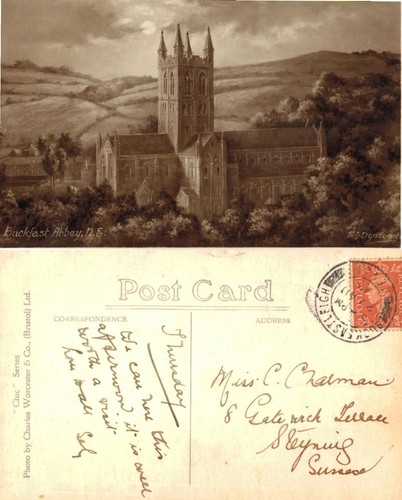 Buckfast Abbey, N.E.
Post Card
CORRESPONDENCE
ADDRESS
"Chic" Series
Photo by Charles Worcester & Co., (Bristol) Ltd.
Thursday
We came here this
afternoon, it is well
worth a visit
Miss C. Chatman
8 Gatewick Terrace
Steyning
Sussex
EASTLEIGH
PM